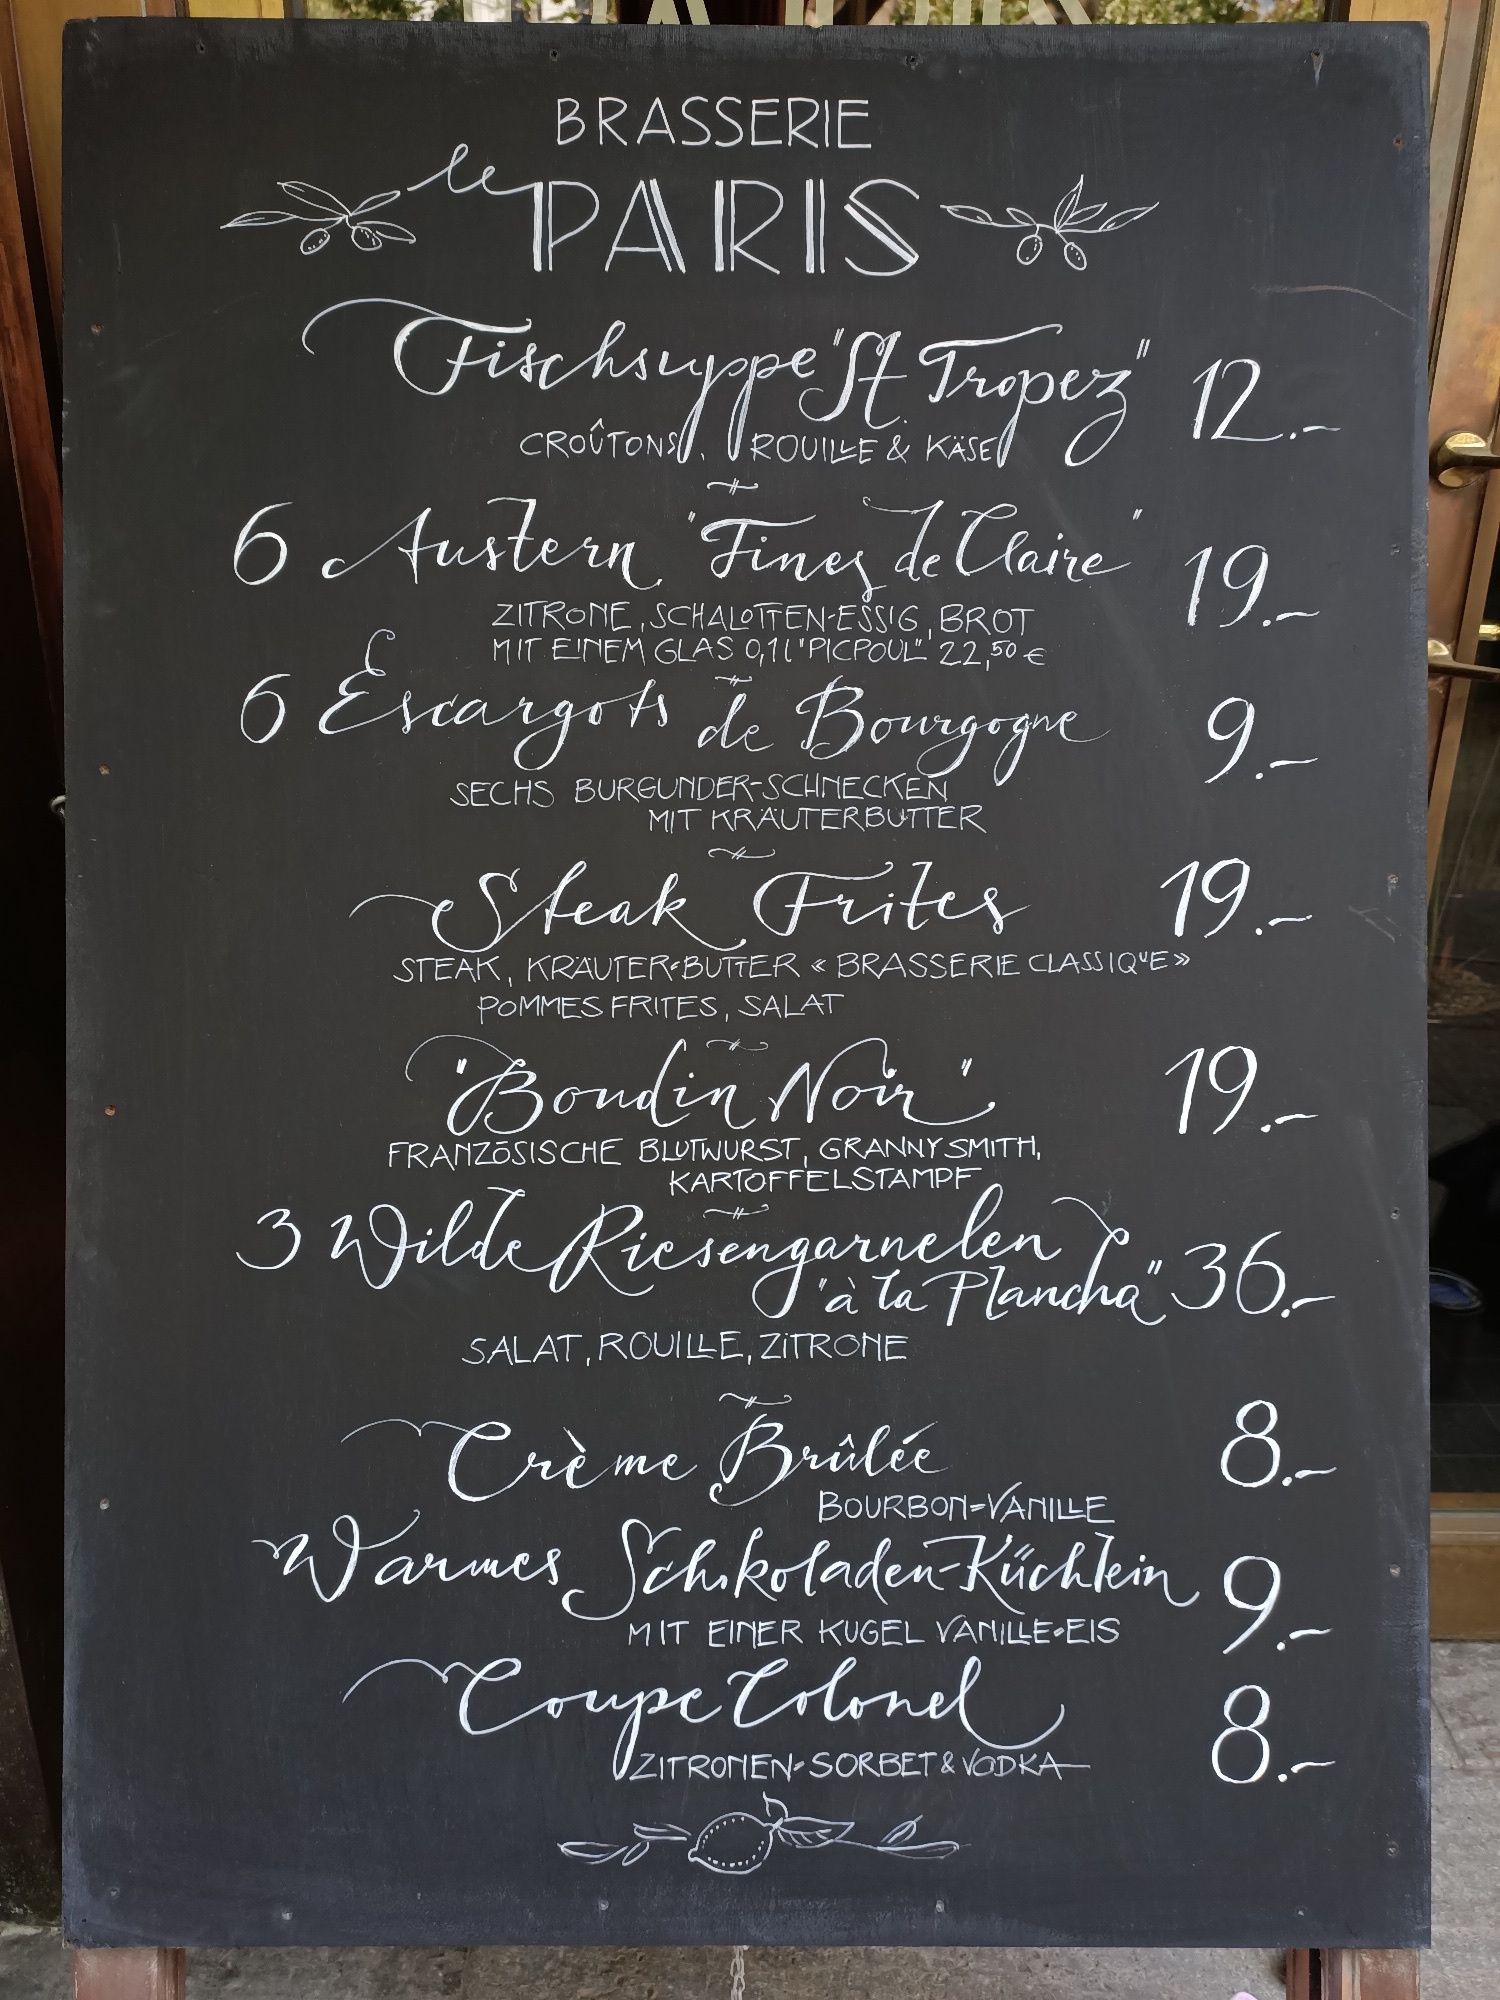 BRASSERIE
le PARIS
Fischsuppe "St. Tropez" 12.-
CROÛTONS, ROUILLE & KÄSE
6 Austern "Fines de Claire" 19.-
ZITRONE, SCHALOTTEN-ESSIG, BROT
MIT EINEM GLAS 0,1l "PICPOUL" 22,50 €
6 Escargots de Bourgogne 9.-
SECHS BURGUNDER-SCHNECKEN
MIT KRÄUTERBUTTER
Steak Frites 19.-
STEAK, KRÄUTER-BUTTER « BRASSERIE CLASSIQUE »
POMMES FRITES, SALAT
"Boudin Noir" 19.-
FRANZÖSISCHE BLUTWURST, GRANNY SMITH,
KARTOFFELSTAMPF
3 Wilde Riesengarnelen
"à la Plancha" 36.-
SALAT, ROUILLE, ZITRONE
Crème Brûlée 8.-
BOURBON-VANILLE
Warmes Schokoladen-Küchlein 9.-
MIT EINER KUGEL VANILLE-EIS
Coupe Colonel 8.-
ZITRONEN-SORBET & VODKA